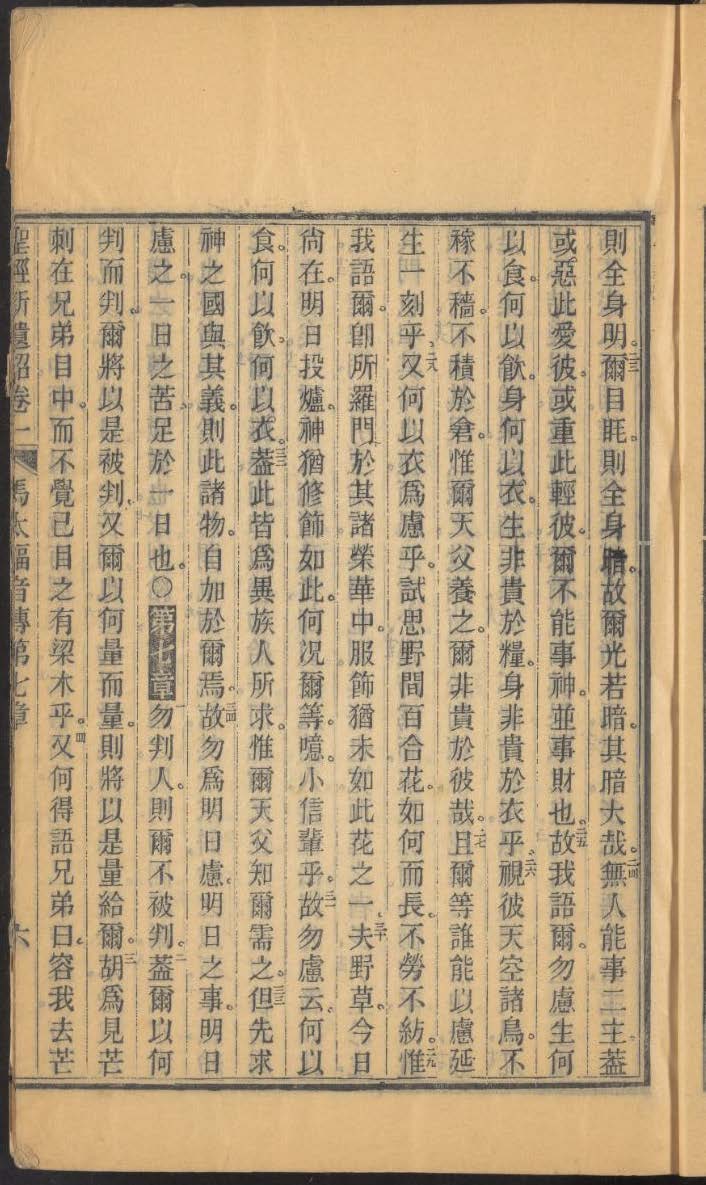 則全身明。二三爾目眊。則全身暗。故爾光若暗。其暗大哉。二四無人能事二主。葢
或惡此愛彼。或重此輕彼。爾不能事神。並事財也。二五故我語爾。勿慮生何
以食。何以飮。身何以衣。生非貴於糧。身非貴於衣乎。二六視彼天空諸鳥。不
稼不穡。不積於倉。惟爾天父養之。爾非貴於彼哉。二七且爾等誰能以慮延
生一刻乎。二八又何以衣爲慮乎。試思野間百合花。如何而長。不勞不紡。二九惟
我語爾。卽所羅門於其諸榮華中。服飾猶未如此花之一。三十夫野草。今日
尙在。明日投爐。神猶修飾如此。何况爾等。噫小信輩乎。三一故勿慮云。何以
食。何以飮。何以衣。三二葢此皆爲異族人所求。惟爾天父知爾需之。三三但先求
神之國與其義。則此諸物。自加於爾焉。三四故勿爲明日慮。明日之事。明日
慮之。一日之苦。足於一日也。〇第七章一勿判人。則爾不被判。二葢爾以何
判而判。爾將以是被判。又爾以何量而量。則將以是量給爾。三胡爲見芒
刺在兄弟目中。而不覺己目之有梁木乎。四又何得語兄弟曰。容我去芒
聖經新遺詔卷一 馬太福音傳第七章 六